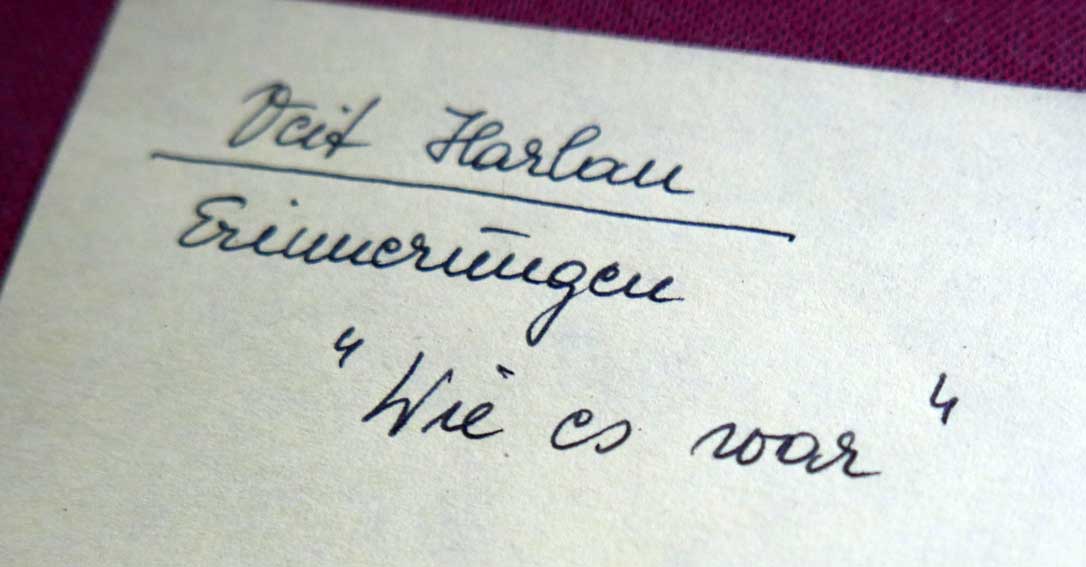 Veit Harlan
Erinnerungen
"Wie es war"